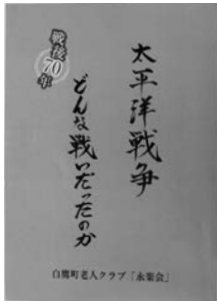 太平洋戦争
どんな戦いだったのか
戦後70年
白鷹町老人クラブ「永楽会」